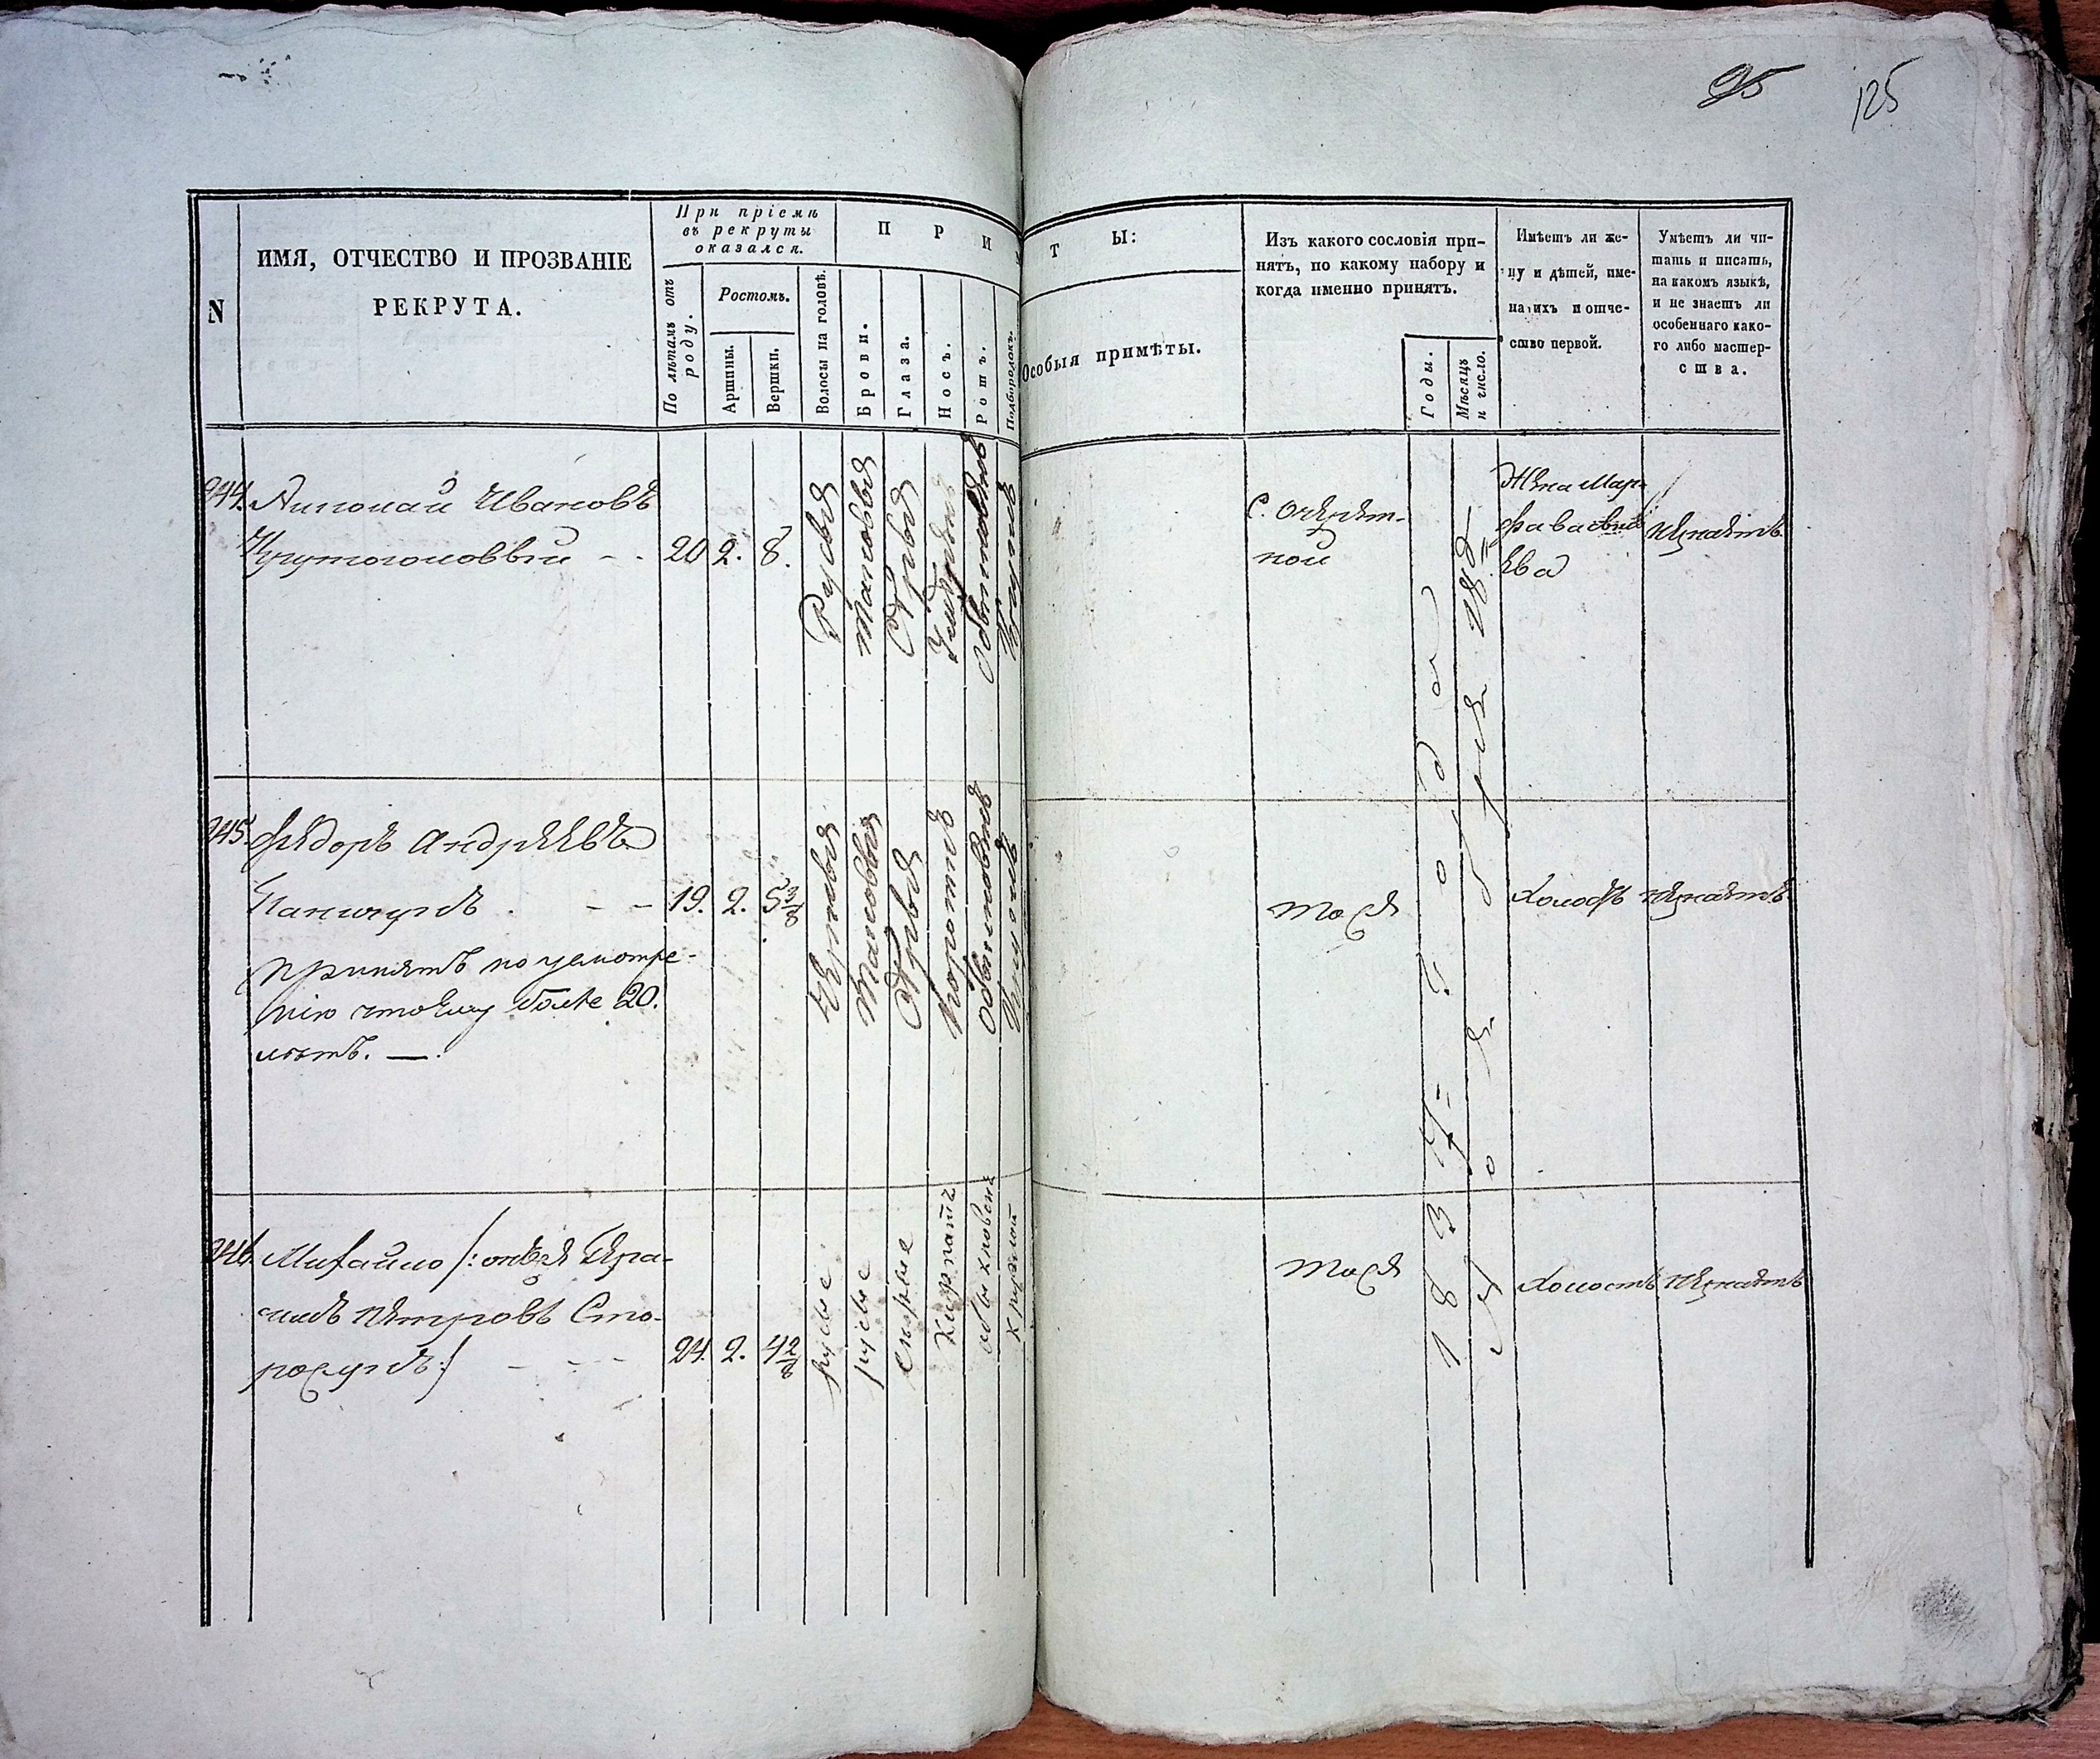 95 125
N
ИМЯ, ОТЧЕСТВО И ПРОЗВАНІЕ
РЕКРУТА.
При пріемѣ
въ рекруты
оказался.
По лѣтамъ отъ
роду.
Ростомъ.
Аршины.
Вершки.
П Р И
Волосы на головѣ.
Брови.
Глаза.
Носъ.
Ротъ.
Подбородокъ.
Т Ы:
Особыя примѣты.
Изъ какого сословія при-
нятъ, по какому набору и
когда именно принятъ.
Годы.
Мѣсяцъ
и число.
Имѣетъ ли же-
ну и дѣтей, име-
на ихъ и отче-
ство первой.
Умѣетъ ли чи-
тать и писать,
на какомъ языкѣ,
и не знаетъ ли
особеннаго како-
го либо мастер-
ства.
244.
Николай Ивановъ
20
2.
8.
Русыя
Таковыя
Сѣрыя
Обыкновенъ
Круглъ
С. Очеред-
ной
Жена Мар-
фа
ева
незнаетъ
245.
Федоръ Андреевъ
19.
2.
5 3/8
принятъ по усмотре-
нію что ему более 20.
лѣтъ. —.
Черныя
Таковыя
Сѣрыя
Коротокъ
Обыкновенъ
Кругловъ
тоже
Холостъ
незнаетъ
246.
Михайло /: онъже Гера-
симъ Петровъ Сто-
рожукъ :/
24.
2.
4 2/8
русые
русые
серые
обыкновенъ
круглой
тоже
холостъ
незнаетъ
1837 = года
18 д